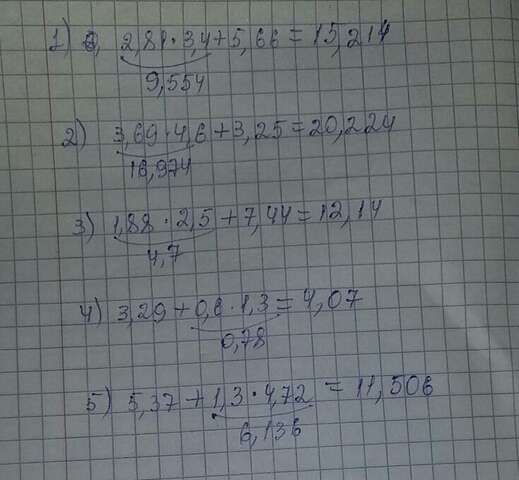 1) 2,81·3,4+5,66=15,214
9,554
2) 3,69·4,6+3,25=20,224
16,974
3) 1,88·2,5+7,44=12,14
4,7
4) 3,29+0,6·1,3=4,07
0,78
5) 5,37+1,3·4,72=11,506
6,136